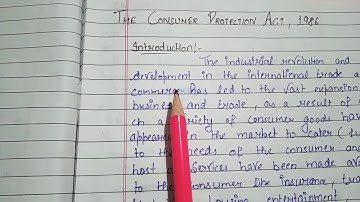 THE CONSUMER PROTECTION ACT, 1986
Introduction:-
The industrial revolution and
development in the international trade a
commerce has led to the vast expansion
business and trade, as a result of
ch a variety of consumer goods hav
appeared in the market to cater (
to the needs of the consumer and
host services have been made ava
to the consumer like insurance, tra
housing, entertainment,